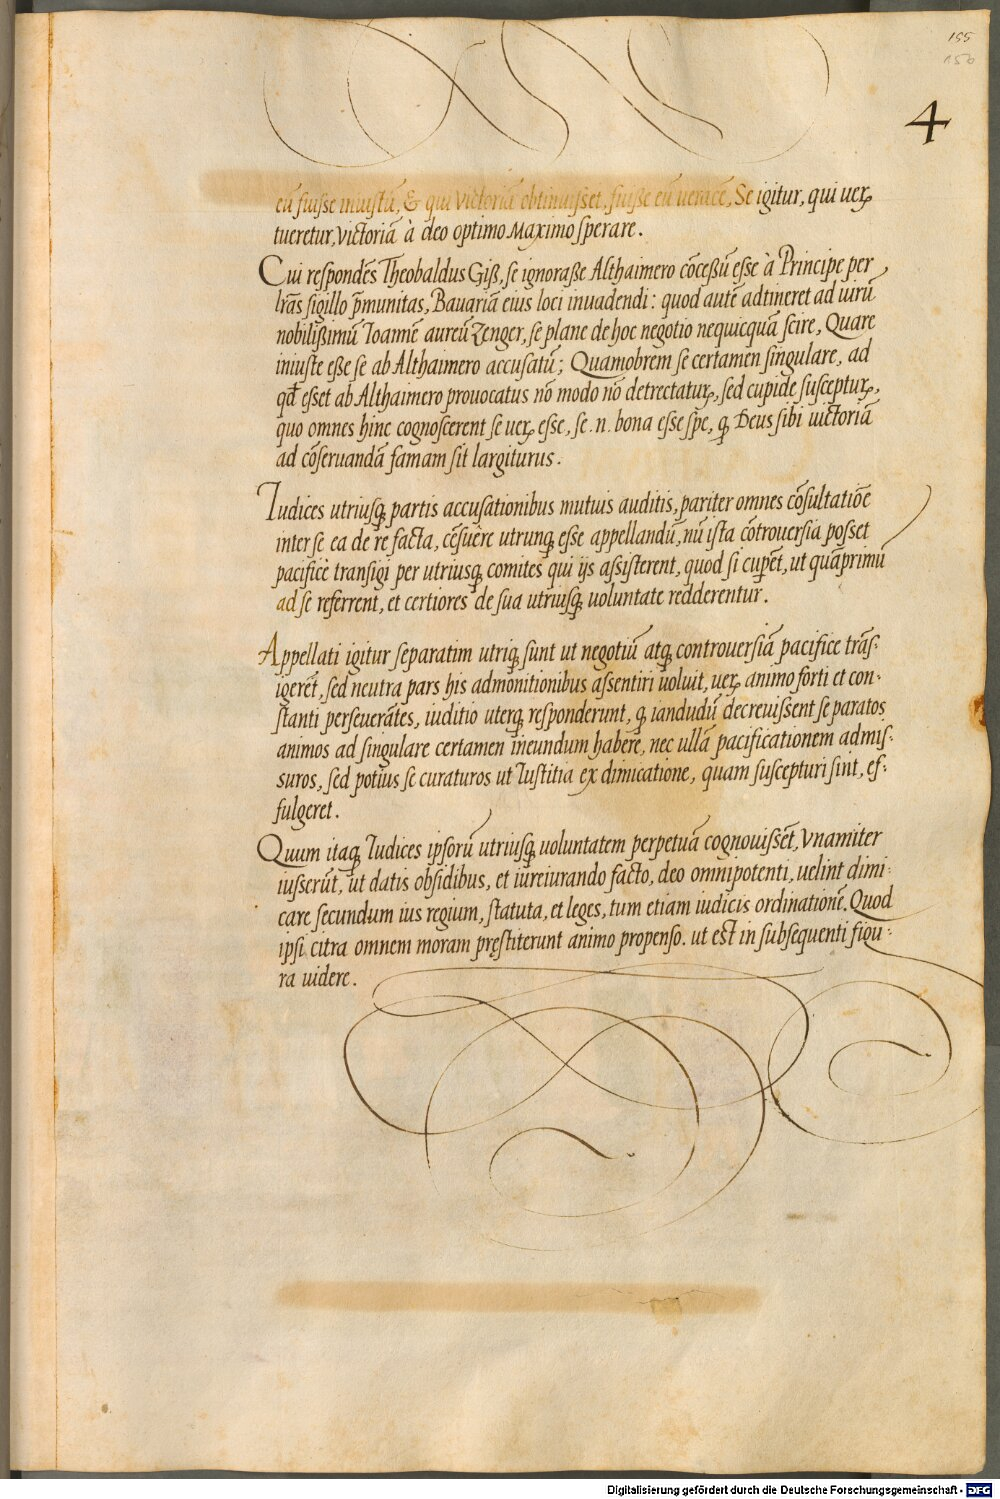 155
150
4
eū fuisse iniustū, & qui victoriā obtinuisset, fuisse eū veracē, Se igitur, qui verꝝ
tueretur, victoriā à deo optimo Maximo sperare.
Cui respondēs Theobaldus Giß, se ignoraße Althaimero cōceßū esse à Principe per
lr̄as sigillo p̄munitas, Bavariā eius loci invadendi: quod autē adtineret ad virū
nobilißimū Ioannē aureū Zenger, se plane de hoc negotio nequicquā scire, Quare
iniuste eße se ab Althaimero accusatū; Quamobrem se certamen singulare, ad
qđ esset ab Althaimero provocatus nō modo nō detrectatuꝝ, sed cupide susceptuꝝ,
quo omnes hinc cognoscerent se verꝝ esse, se .n. bona esse spe, ꝙ Deus sibi victoriā
ad cōservandā famam sit largiturus.
Iudices utriusqꝫ partis accusationibus mutuis auditis, pariter omnes cōsultatiōe
inter se ea de re facta, cēsuêre utrunqꝫ esse appellandū, nū ista cōtroversia posset
pacificè transigi per utriusqꝫ comites qui ijs assisterent, quod si cuperēt, ut quāprimū
ad se referrent, et certiores de sua utriusqꝫ voluntate redderentur.
Appellati igitur separatim utriqꝫ sunt ut negotiū atqꝫ controversiā pacifice trās-
igerēt, sed neutra pars his admonitionibus assentiri voluit, verꝝ animo forti et con-
stanti perseverātes, iuditio uterqꝫ responderunt, ꝙ iandudū decrevissent se paratos
animos ad singulare certamen ineundum habēre, nec ullā pacificationem admis-
suros, sed potius se curaturos ut Iustitia ex dimicatione, quam suscepturi sint, ef-
fulgeret.
Quum itaqꝫ Iudices ipsorū utriusqꝫ voluntatem perpetuā cognovissēt, Vnamiter
iusserūt, ut datis obsidibus, et iureiurando facto, deo omnipotenti, velint dimi-
care secundum ius regium, statuta, et leges, tum etiam iudicis ordinationē. Quod
ipsi citra omnem moram pręstiterunt animo propenso. ut est in subsequenti figu-
ra videre.
Digitalisierung gefördert durch die Deutsche Forschungsgemeinschaft - DFG